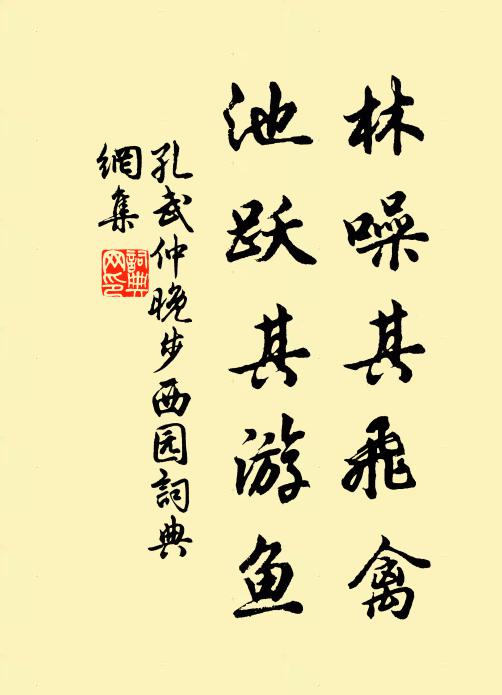 林噪其飛禽
池跃其游鱼
孔武仲晚步西园詞典
網集
詞典網印